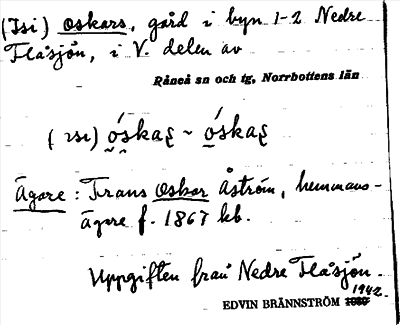 (Isi) Oskars, gård i byn 1-2 Nedre
Flåsjön, i V. delen av
Råneå sn och tg, Norrbottens län
Ägare: Frans Oskar Åström, hemmans-
ägare f. 1867 kb.
Uppgiften från Nedre Flåsjön.
1942.
EDVIN BRÄNNSTRÖM